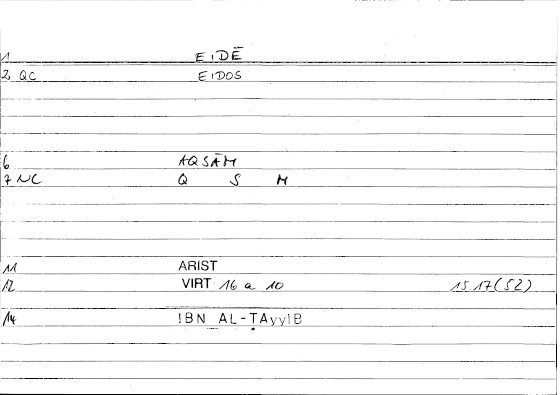 1 EIDĒ
2 QC EIDOS
6 AQSĀM
7 NC Q S M
11 ARIST
12 VIRT 16 a 10 15.17(52)
14 IBN AL-ṬAyyIB